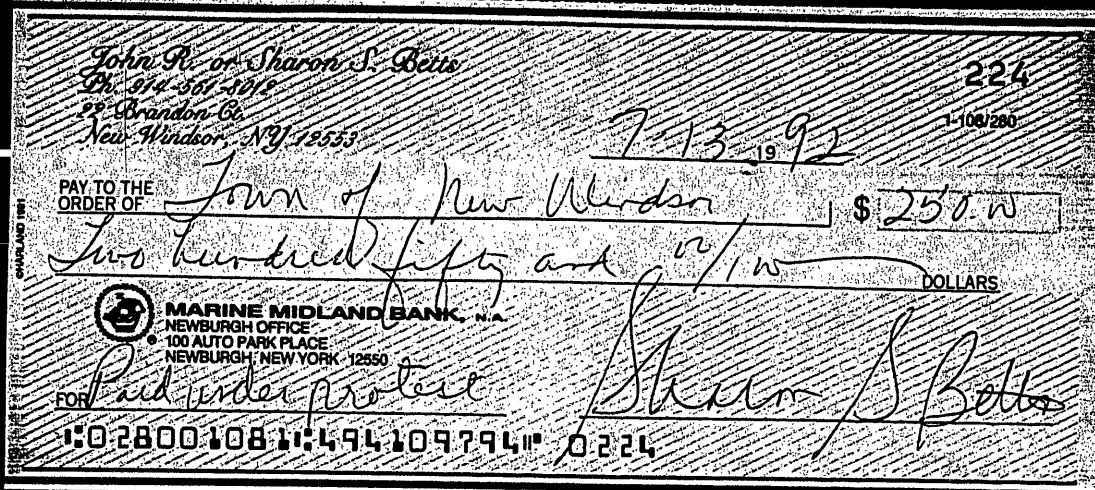 John R. or Sharon S. Betts
Ph. 914-561-8012
22 Brandon Ct.
New Windsor, NY 12553
224
1-108/280
7-13 19 92
PAY TO THE ORDER OF Town of New Windsor $ 250.00
Two hundred fifty and 00/100 DOLLARS
©HARLAND 1991
MARINE MIDLAND BANK, N.A.
NEWBURGH OFFICE
100 AUTO PARK PLACE
NEWBURGH, NEW YORK 12550
FOR Paid under protest Sharon S Betts
⑆028001081⑆494109794⑈ 0224